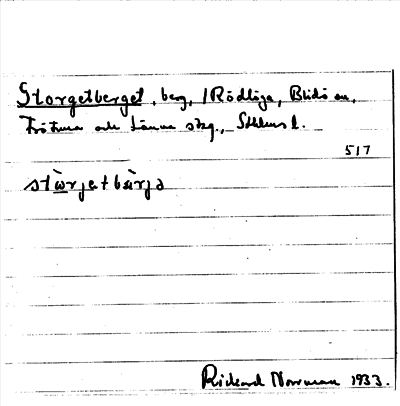 Storgetberget, berg, i Rödlöga, Blidö sn,
Frötuna och Länna skg., Sthlms l.
517
stòrjetbàrjə
Rickard Norrman 1933.